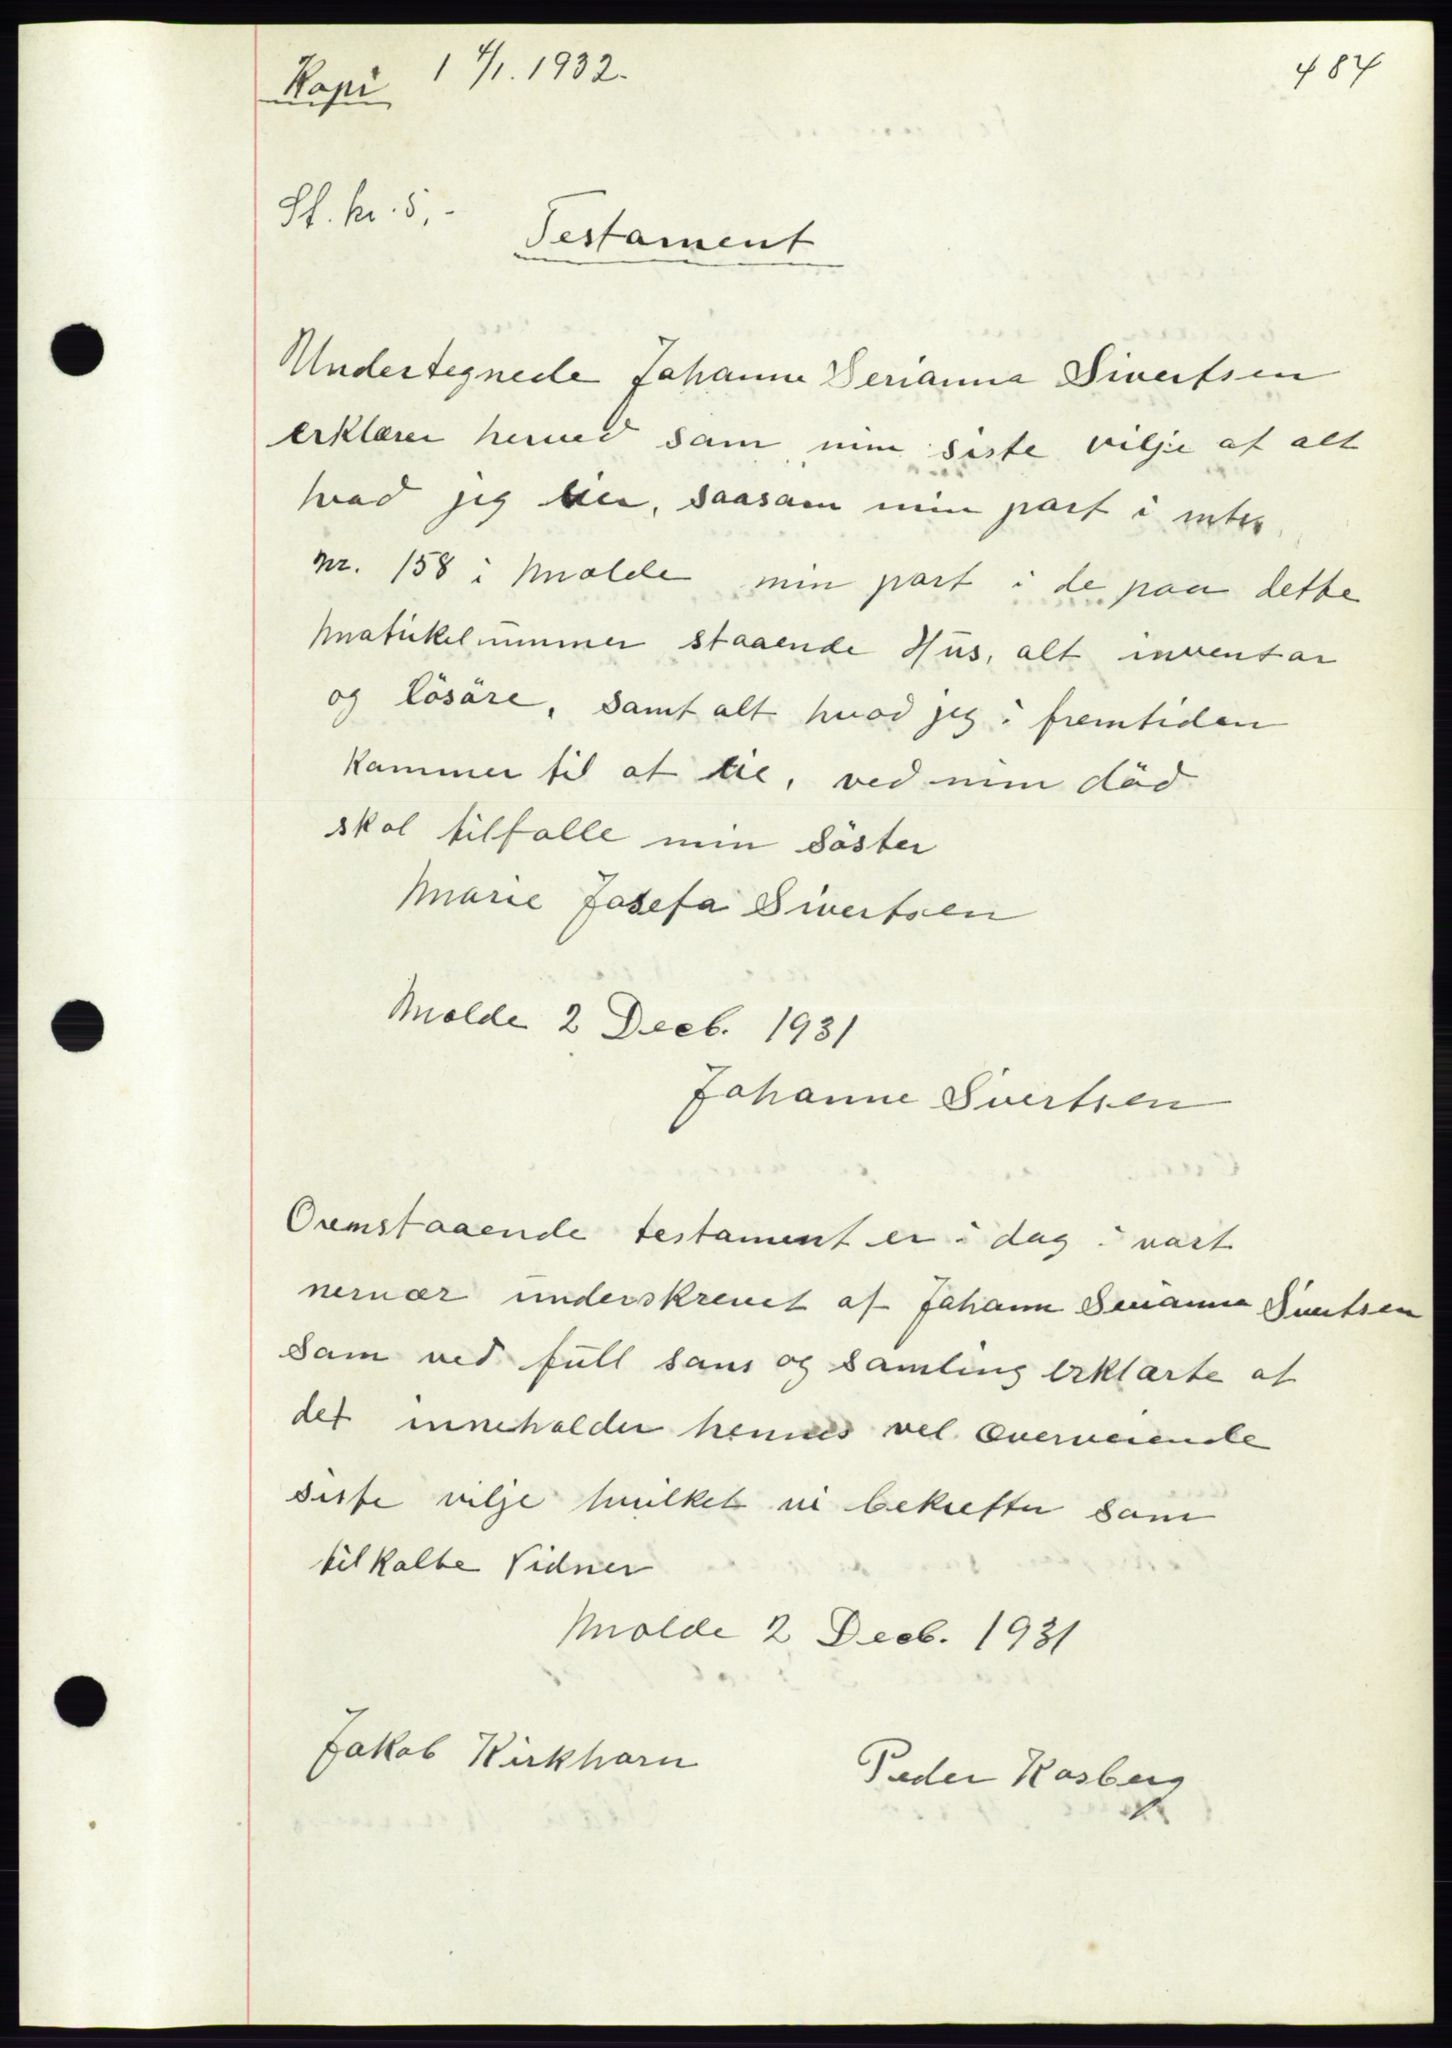 Kopi 1 4/1. 1932. 484
St. kr. 5,-
Testament
Undertegnede Johanne Serianna Sivertsen
erklærer herved som min siste vilje at alt
hvad jeg eier, saasom min part i mtr.
nr. 158 i Molde min part i de paa dette
Matrikelnummer staaende Hus, alt inventar
og lösöre, samt alt hvad jeg i fremtiden
kommer til at eie, ved min död
skal tilfalle min söster
Marie Josefa Sivertsen
Molde 2 Decb. 1931
Johanne Sivertsen
Ovenstaaende testament er i dag i vort
nervær underskrevet af Johanne Serianna Sivertsen
som ved full sans og samling erklærte at
det inneholder hennes vel overveiende
siste vilje hvilket vi bekrefter som
tilkalte Vidner
Molde 2 Decb. 1931
Jakob Kirkhorn Peder Kosberg